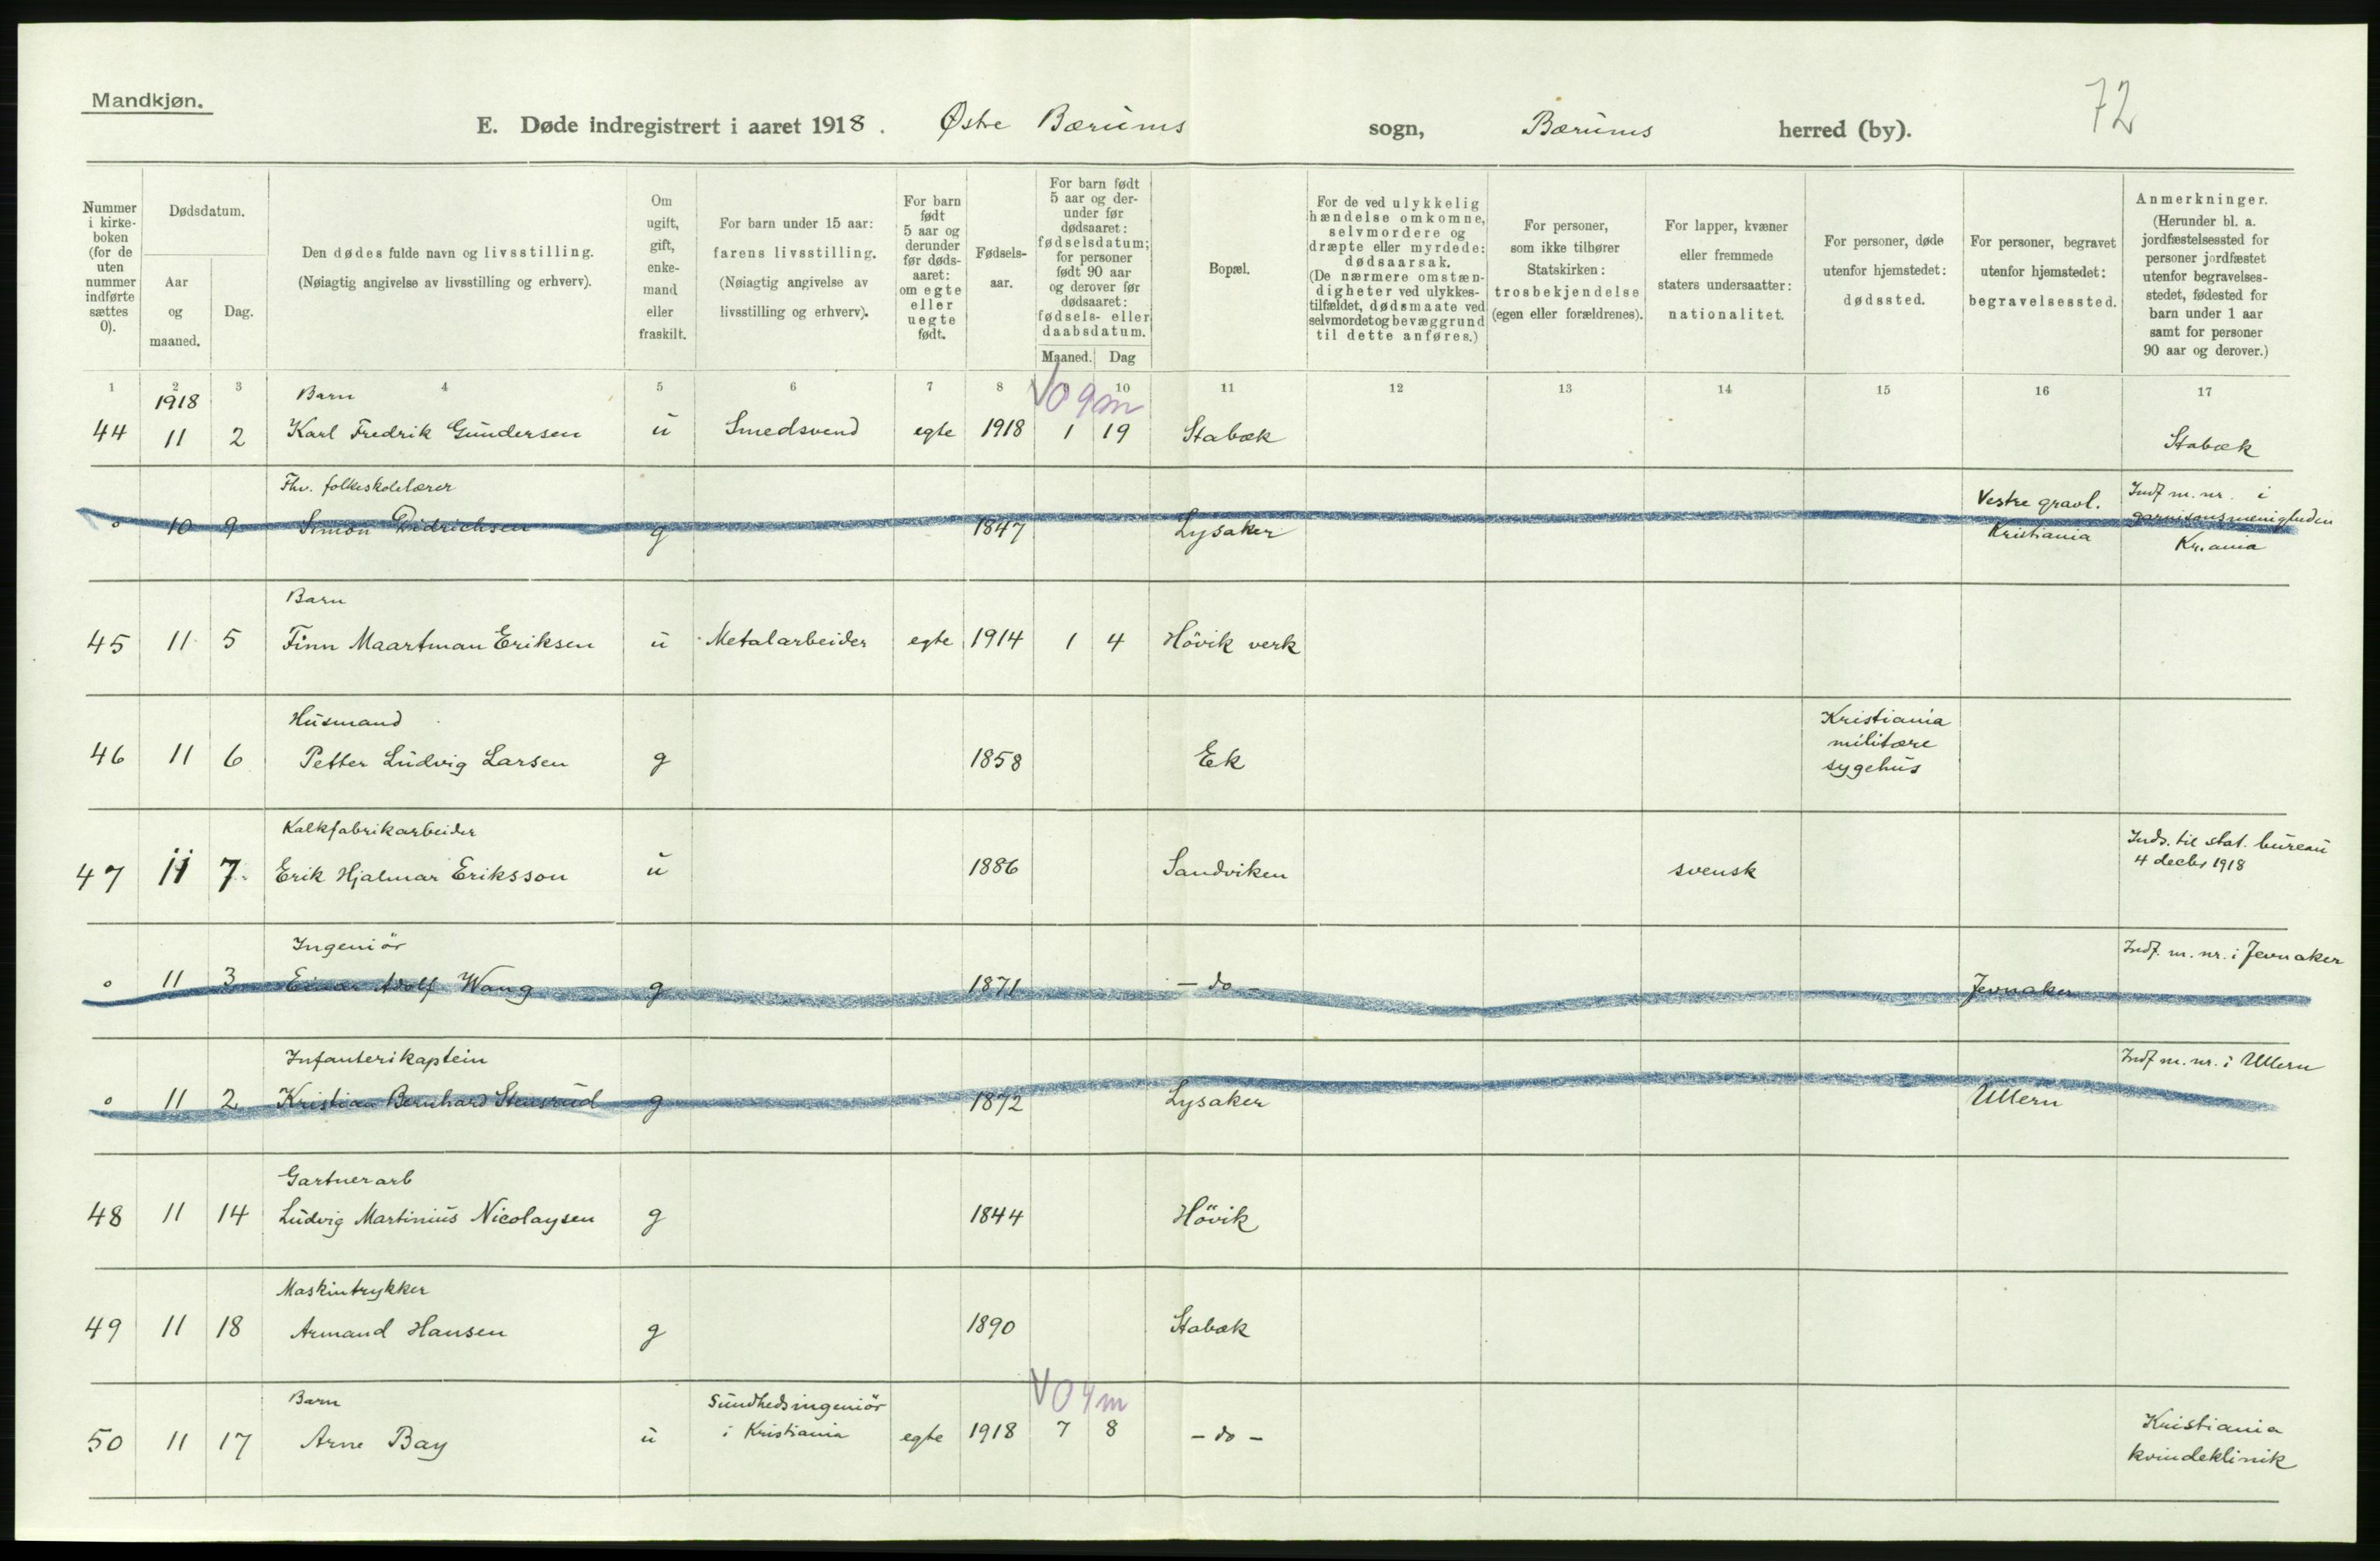 Mandkjøn.
72
E. Døde indregistrert i aaret 1918. Østre Bærums sogn, Bærums herred (by).
Nummer i kirke-
boken
(for de
uten
nummer
indførte
sættes
0).
Dødsdatum.
Aar
og
maaned.
Dag.
Den dødes fulde navn og livsstilling.
(Nøiagtig angivelse av livsstilling og erhverv).
Om
ugift,
gift,
enke-
mand
eller
fraskilt.
For barn under 15 aar:
farens livsstilling.
(Nøiagtig angivelse av
livsstilling og erhverv).
For barn
født
5 aar og
derunder
før døds-
aaret:
om egte
eller
uegte
født.
Fødsels-
aar.
For barn født
5 aar og der-
under før
dødsaaret:
fødselsdatum;
for personer
født 90 aar
og derover før
dødsaaret:
fødsels- eller
daabsdatum.
Maaned. Dag
Bopæl.
For de ved ulykkelig
hændelse omkomne,
selvmordere og
dræpte eller myrdede:
dødsaarsak.
(De nærmere omstæn-
digheter ved ulykkes-
tilfældet, dødsmaate ved
selvmordet og bevæggrund
til dette anføres.)
For personer,
som ikke tilhører
Statskirken:
trosbekjendelse
(egen eller forældrenes).
For lapper, kvæner
eller fremmede
staters undersaatter:
nationalitet.
For personer, døde
utenfor hjemstedet:
dødssted.
For personer, begravet
utenfor hjemstedet:
begravelsessted.
Anmerkninger.
(Herunder bl. a.
jordfæstelsessted for
personer jordfæstet
utenfor begravelses-
stedet, fødested for
barn under 1 aar
samt for personer
90 aar og derover.)
1 2 3 4 5 6 7 8 10 11 12 13 14 15 16 17
1918 Barn V 0 9 m
44 11 2 Karl Fredrik Gundersen u Smedsvend egte 1918 1 19 Stabæk Stabæk
Fhv. folkeskolelærer Vestre gravl. Indf m. nr. i
0 10 9 Simon Didrichsen g 1847 Lysaker Kristiania garnisonsmenigheden
Kr.ania
Barn
45 11 5 Finn Maartman Eriksen u Metalarbeider egte 1914 1 4 Hövik verk
Husmand Kristiania
militære
46 11 6 Petter Ludvig Larsen g 1858 Ek sygehus
Kalkfabrikarbeider Inds. til stat. bureau
47 11 7 Erik Hjalmar Eriksson u 1886 Sandviken svensk 4 decbr 1918
Ingeniör Indf. m. nr. i Jevnaker
0 11 3 Einar Adolf Wang g 1871 - do - Jevnaker
Infanterikaptein Indf m. nr. i Ullern
0 11 2 Kristian Bernhard Stensrud g 1872 Lysaker Ullern
Gartnerarb
48 11 14 Ludvig Martinius Nicolaysen g 1844 Hövik
Maskintrykker
49 11 18 Armand Hansen g 1890 Stabæk
Barn Sundhedsingeniör V 0 4 m Kristiania
50 11 17 Arne Bay u i Kristiania egte 1918 7 8 - do - kvindeklinik